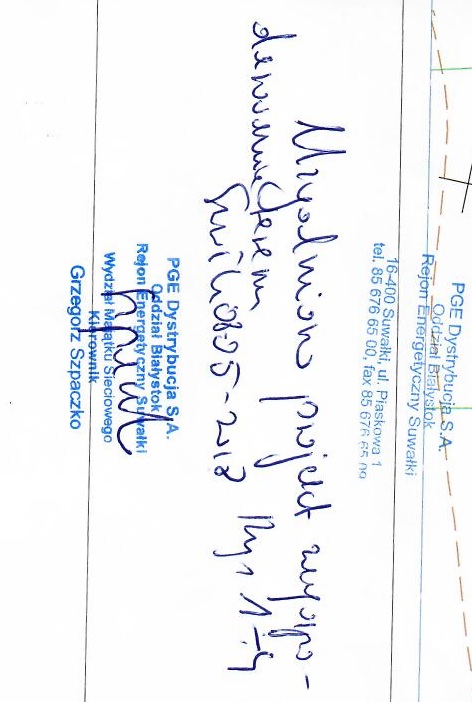 PGE Dystrybucja S.A.
Oddział Białystok
Rejon Energetyczny Suwałki
16-400 Suwałki, ul. Piaskowa 1
tel. 85 676 65 00, fax 85 676 65 00
Uzgodniono projekt zagospo-
darowania terenem Rys 1÷4
Suwałki
PGE Dystrybucja S.A.
Oddział Białystok
Rejon Energetyczny Suwałki
Wydział Majątku Sieciowego
Kierownik
Grzegorz Szpaczko